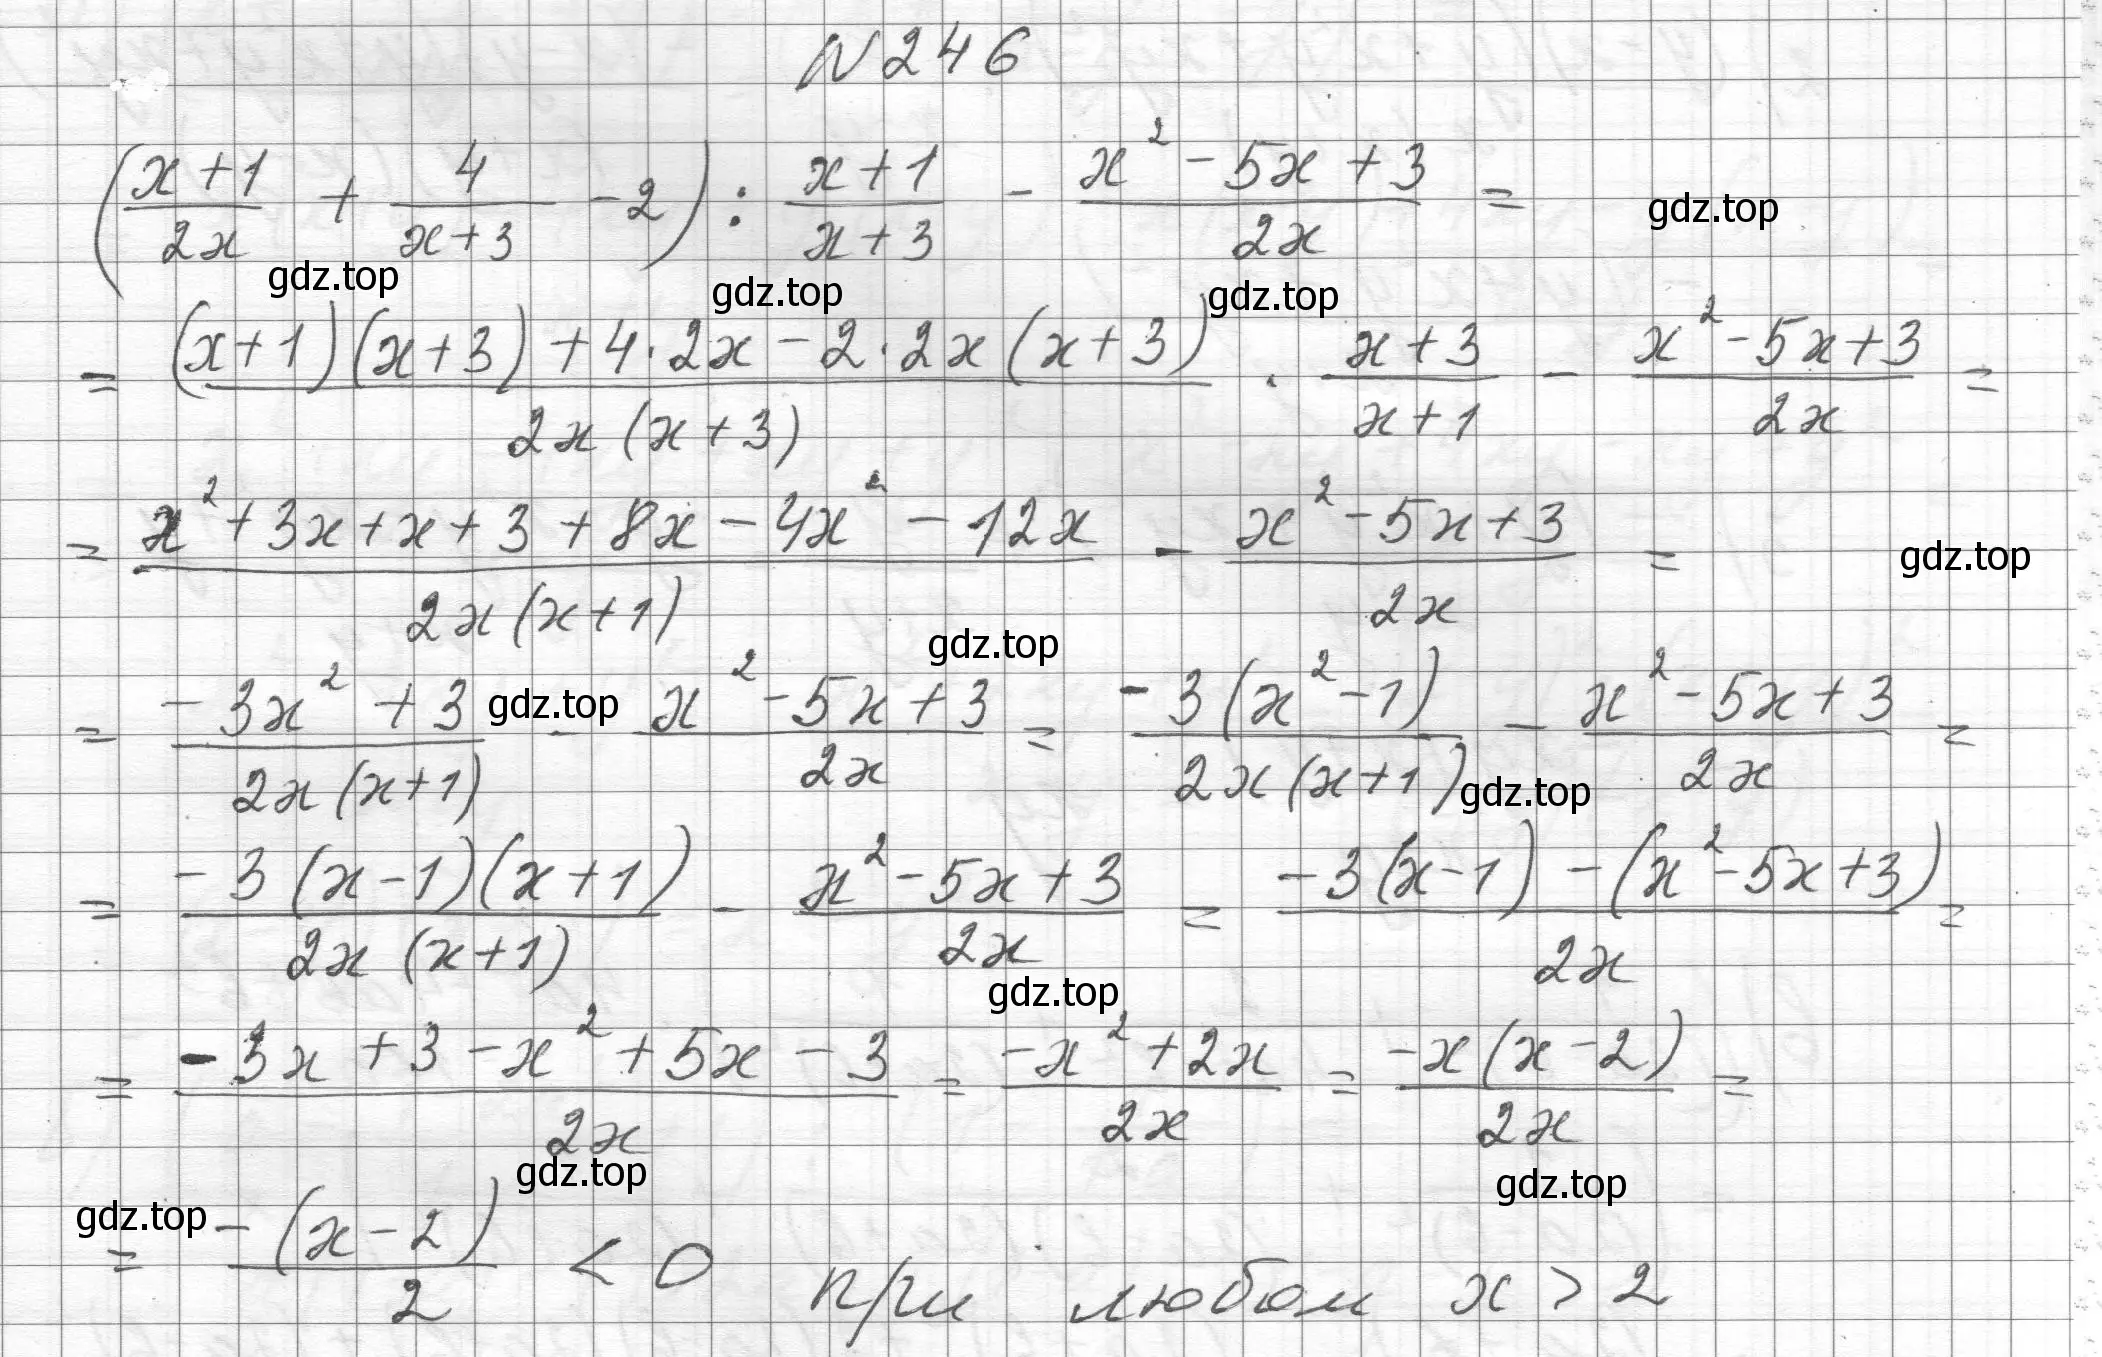 N 246
((x+1)/(2x) + 4/(x+3) - 2) : (x+1)/(x+3) - (x² - 5x + 3)/(2x) =
gdz.top
gdz.top gdz.top gdz.top
= ((x+1)(x+3) + 4·2x - 2·2x(x+3))/(2x(x+3)) · (x+3)/(x+1) - (x² - 5x + 3)/(2x) =
= (x² + 3x + x + 3 + 8x - 4x² - 12x)/(2x(x+1)) - (x² - 5x + 3)/(2x) =
gdz.top
gdz.top
= (-3x² + 3)/(2x(x+1)) - (x² - 5x + 3)/(2x) = (-3(x² - 1))/(2x(x+1)) - (x² - 5x + 3)/(2x) =
gdz.top
gdz.top
= (-3(x-1)(x+1))/(2x(x+1)) - (x² - 5x + 3)/(2x) = (-3(x-1) - (x² - 5x + 3))/(2x) =
gdz.top
= (-3x + 3 - x² + 5x - 3)/(2x) = (-x² + 2x)/(2x) = (-x(x-2))/(2x) =
gdz.top gdz.top
gdz.top
= (-(x-2))/2 < 0 при любом x > 2